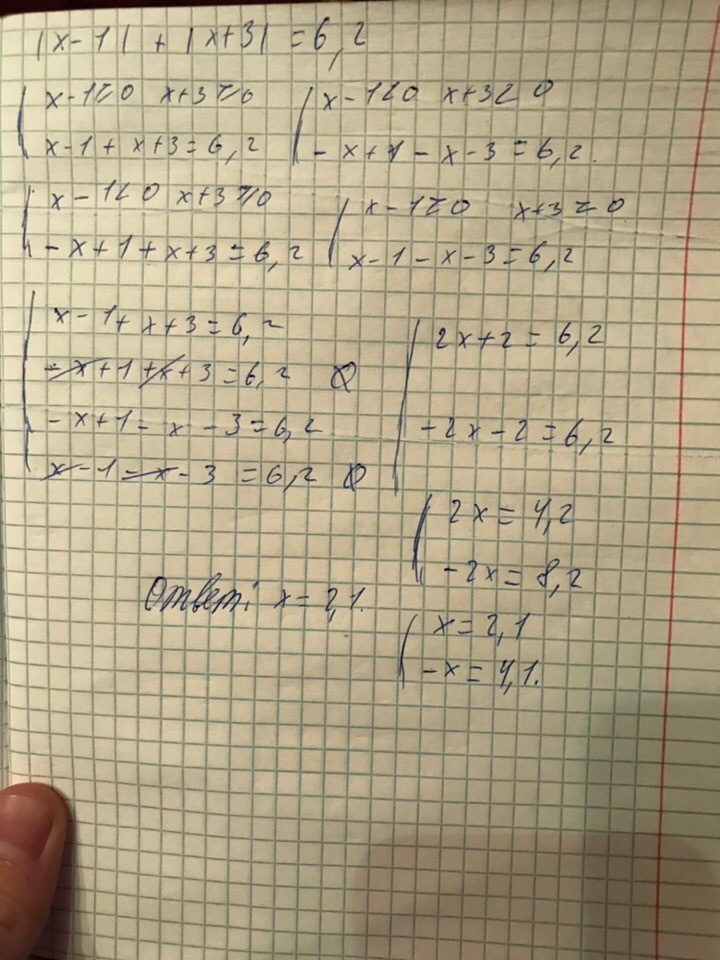 |x-1| + |x+3| = 6,2
x-1≥0 x+3≥0
x-1+x+3=6,2
x-1<0 x+3<0
-x+1-x-3=6,2.
x-1<0 x+3≥0
-x+1+x+3=6,2
x-1≥0 x+3<0
x-1-x-3=6,2
x-1+x+3=6,2
-x+1+x+3=6,2 Ø
-x+1-x-3=6,2
x-1-x-3=6,2 Ø
2x+2=6,2
-2x-2=6,2
2x=4,2
-2x=8,2
x=2,1
-x=4,1.
Ответ: x=2,1.